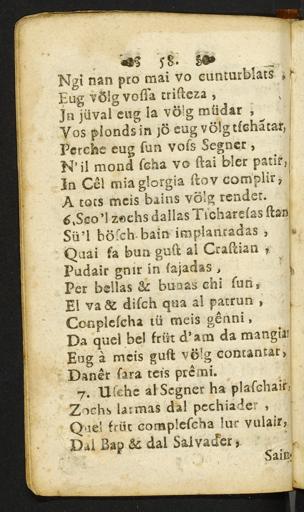 58.
Ngi nan pro mai vo cunturblats,
Eug völg vossa tristeza,
In jüval eug la völg müdar,
Vos plonds in jö eug völg tschãtar,
Perche eug sun voss Segner,
N'il mond scha vo stai bler patir,
In Cêl mia glorgia stov complir,
A tots meis bains völg render.
6. Sco'l zochs dallas Ticharesas stan
Sü'l bösch bain implantadas,
Quai fa bun gust al Crastian,
Pudair gnir in sajadas,
Per bellas & bunas chi sun,
El va & disch qua al patrun,
Conplescha tü meis gênni,
Da quel bel früt d'am da mangiar
Eug à meis gust völg contantar,
Danêr sara teis prêmi.
7. Usche al Segner ha plaschair,
Zochs larmas dal pechiader,
Quel früt complescha lur vulair,
Dal Bap & dal Salvader,
Sain